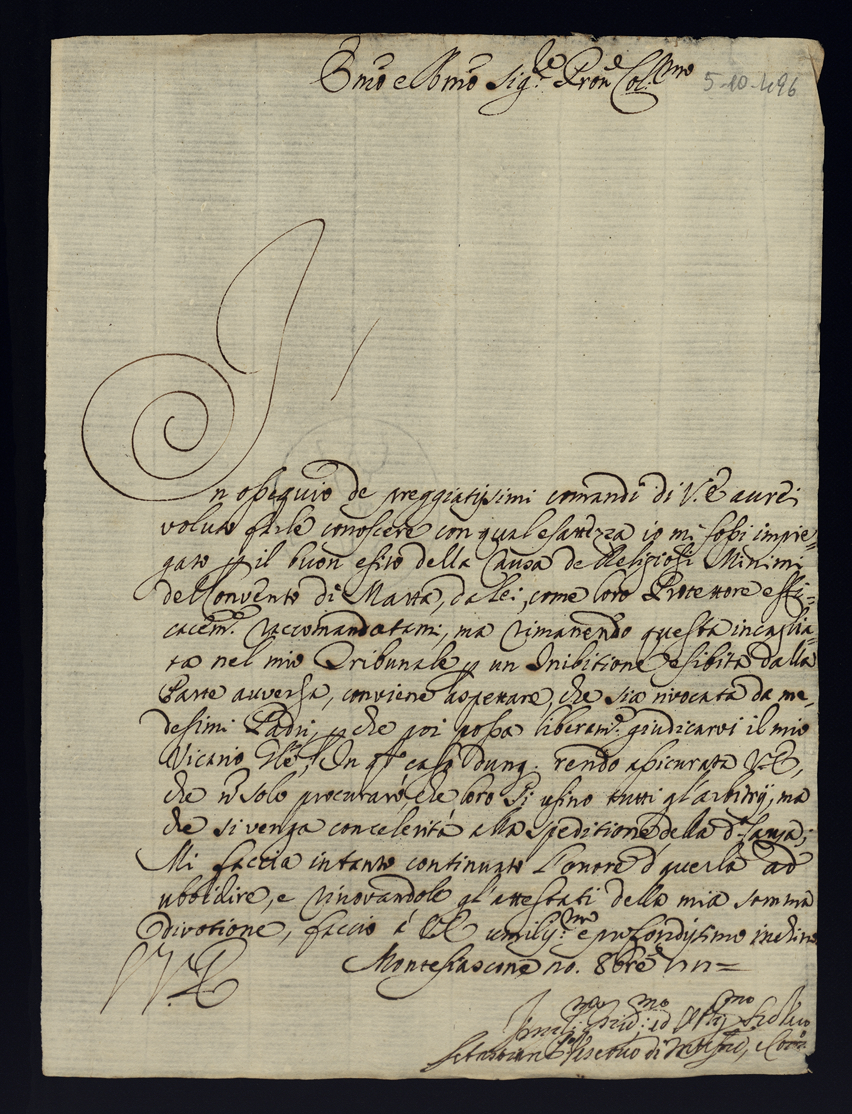 Em̃o e Rm̃o Sig.re Pron.e Col.mo
5-10-496
In ossequio de preggiatissimi comandi di V.E. aurei
voluto farle conoscere con qual esattezza io mi fossi impie=
gato p il buon esito della Causa de Religiosi Minimi
del Convento di Marta, da lei, come loro Protettore effi=
cacem.te raccomandatami, ma rimanendo questa incaglia=
ta nel mio Tribunale p un Inibitione esibita dalla
Parte auversa, conviene aspettare, che sia rivocata da me=
desimi Padri, p che poi possa liberam.te giudicarvi il mio
Vicario Gñle, In q.to caso dunq. rendo assicurata V.E.,
che ñ solo procurarò che loro si usino tutti gl'arbitrij, ma
che si venga con celerità alla speditione della d.a Causa;
Mi faccia intanto continuato l'onore d'querla ad
ubbidire, e rinovandole gl'attestati della mia somma
divotione, faccio à V.E. umiliss.mo e profondissimo inchino
Montefiascone 8bre
V.E.
Vescovo di